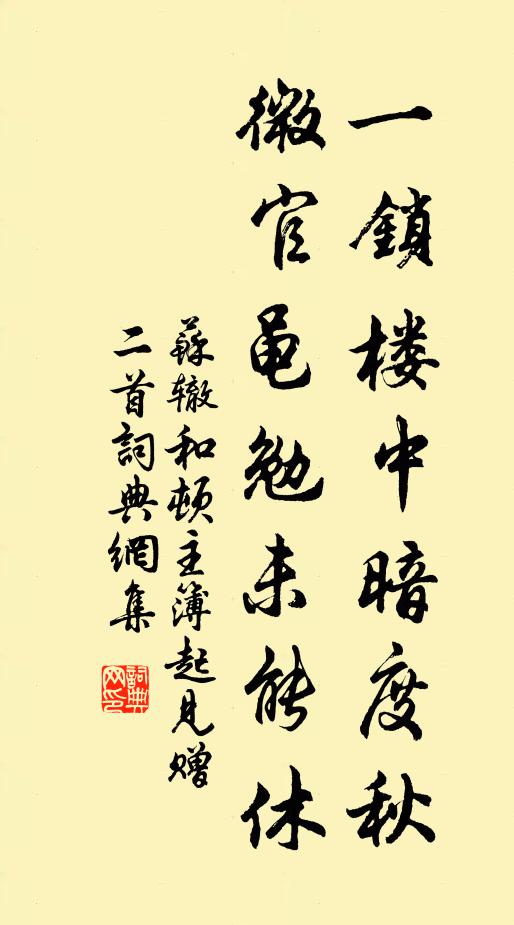 一鎖楼中暗度秋
微官黽勉未能休
蘇辙和頓主簿起見贈
二首詞典網集
詞典
网印